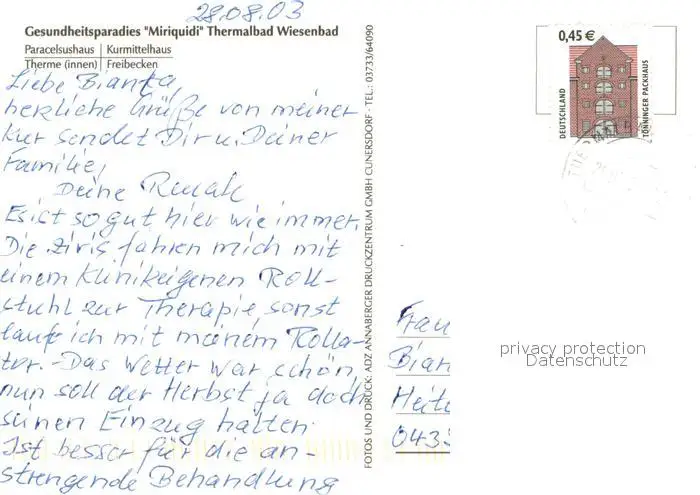 28.08.03
Gesundheitsparadies "Miriquidi" Thermalbad Wiesenbad
Paracelsushaus | Kurmittelhaus
Therme (innen) | Freibecken
Liebe Bianka,
herzliche Grüße von meiner
Kur sendet Dir u. Deiner
Familie,
Deine
Es ist so gut hier wie immer.
Die Zivis fahren mich mit
einem Klinikeigenen Roll-
stuhl zur Therapie, sonst
laufe ich mit meinem Rolla-
tor. - Das Wetter war schön,
nun soll der Herbst ja doch
seinen Einzug halten.
Ist besser für die an-
strengende Behandlung
FOTOS UND DRUCK: ADZ ANNABERGER DRUCKZENTRUM GMBH CUNERSDORF - TEL.: 03733/64090
0,45 €
DEUTSCHLAND
TÖNNINGER PACKHAUS
Frau
Bian
0435
privacy protection
Datenschutz